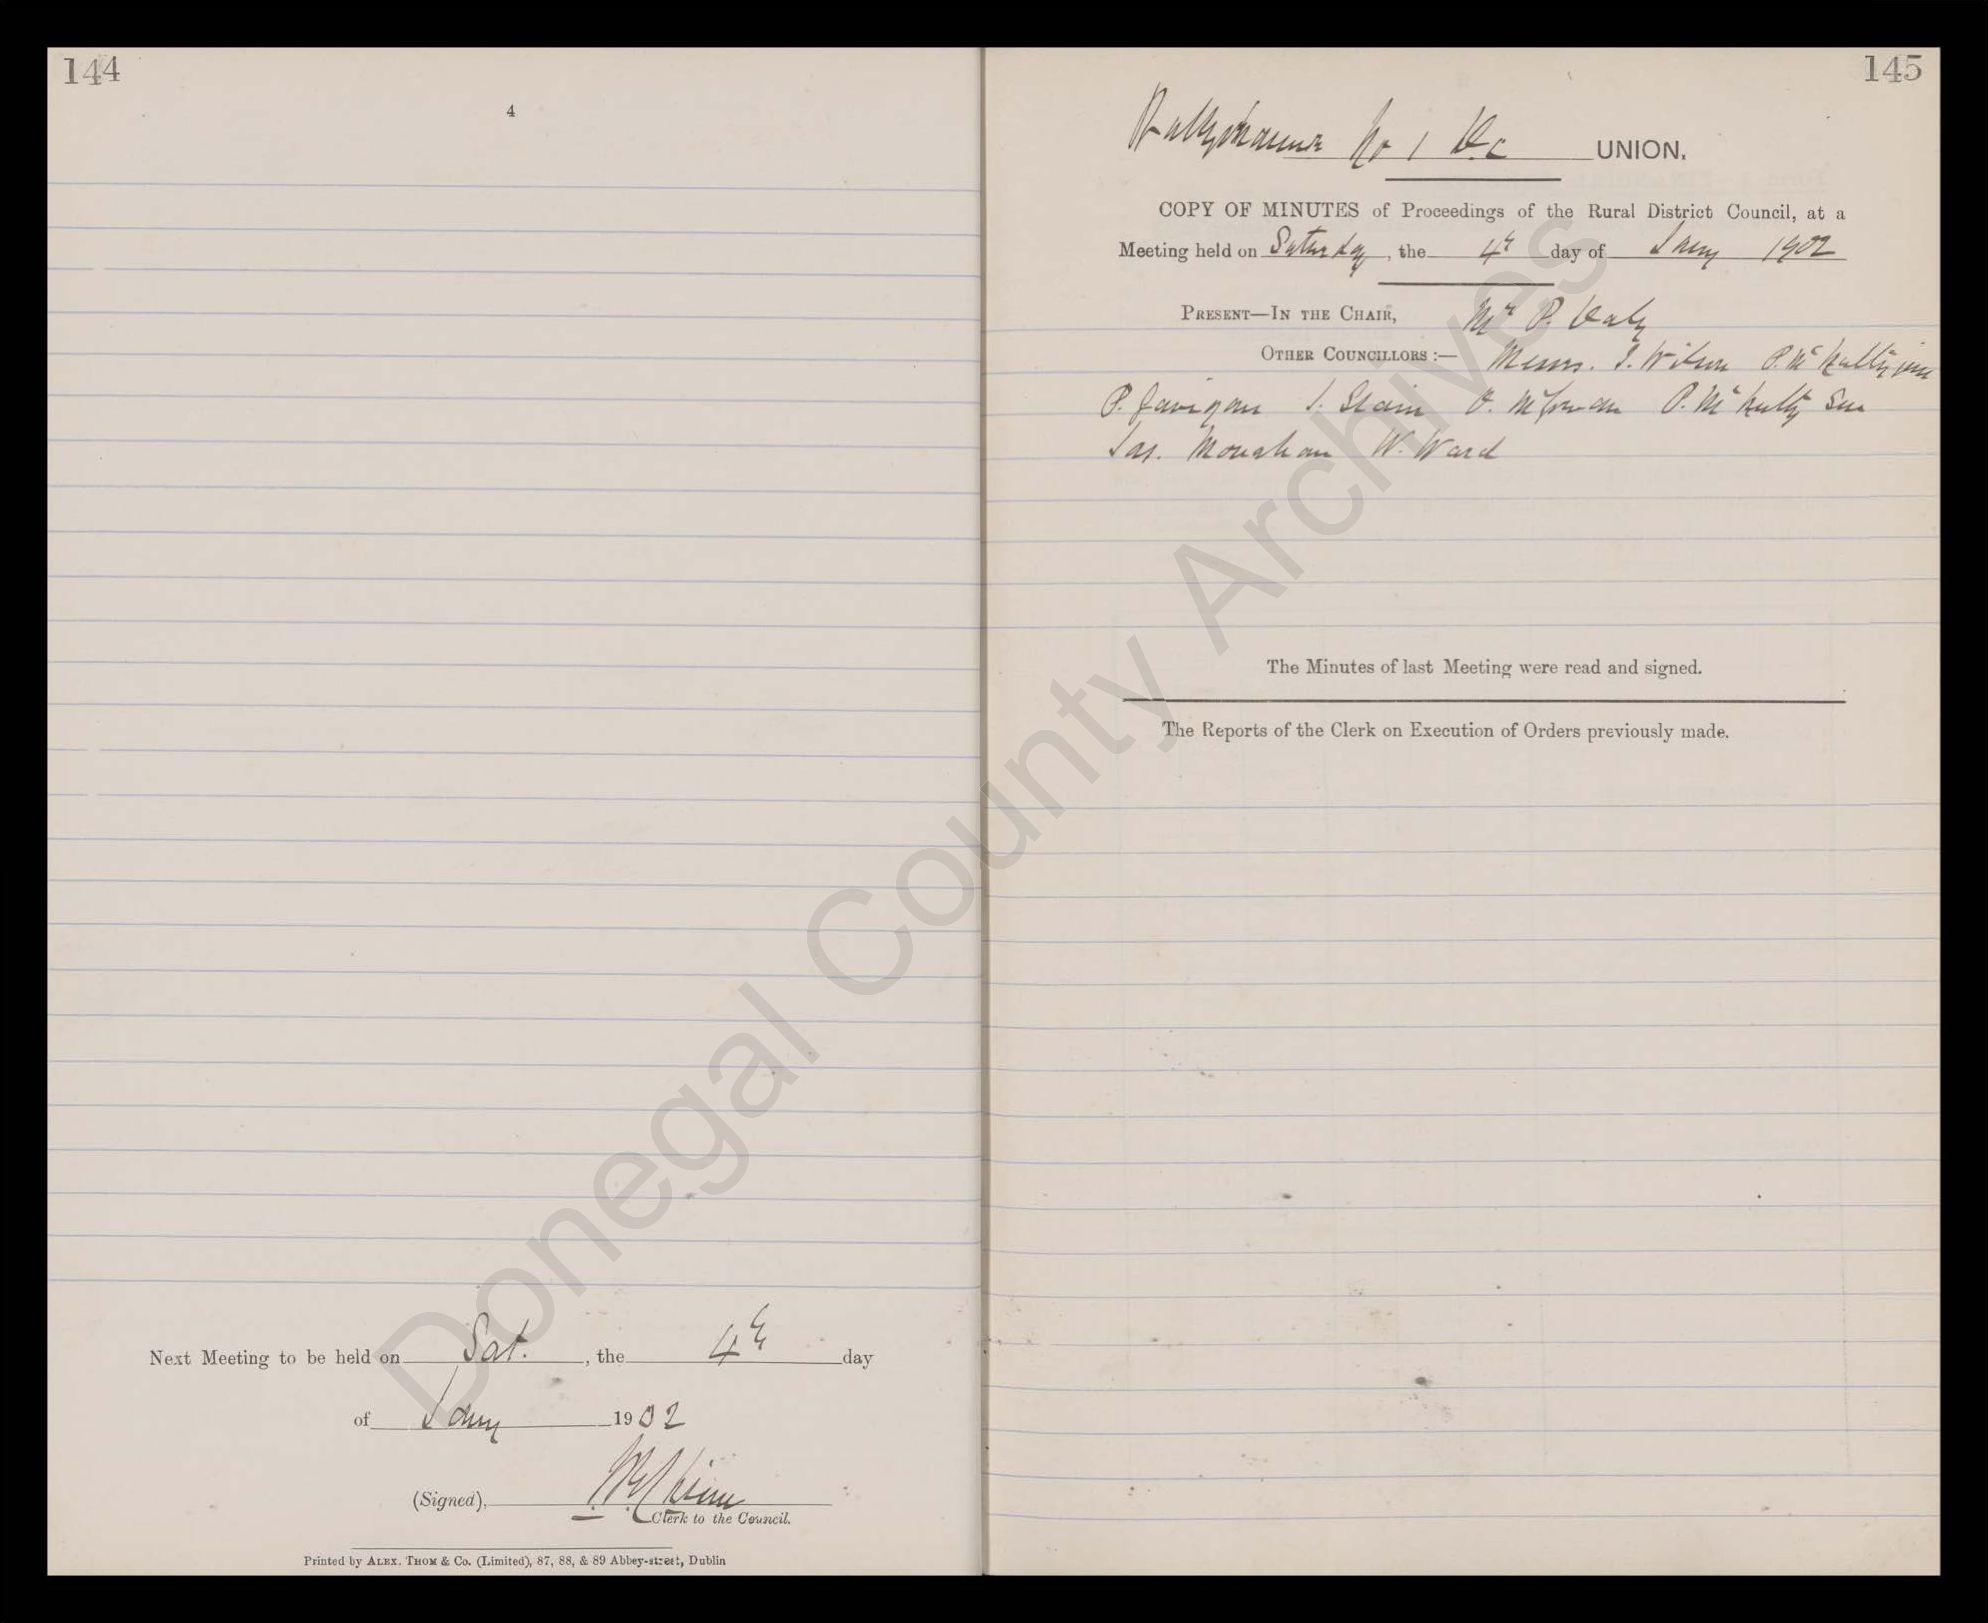 144
4
Next Meeting to be held on Sat. , the 4th day
of Jany 1902
(Signed),
Clerk to the Council.
Printed by ALEX. THOM & CO. (Limited), 87, 88, & 89 Abbey-street, Dublin
145
Ballyshannon No 1 D.C UNION.
COPY OF MINUTES of Proceedings of the Rural District Council, at a
Meeting held on Saturday, the 4th day of Jany 1902
PRESENT—IN THE CHAIR, Mr P. Daly
OTHER COUNCILLORS :— Messrs. J. Wilson P. McNulty junr
P. Gavigan J. Stain McGowan P. McNulty Senr
Jas. Monahan W. Ward
The Minutes of last Meeting were read and signed.
The Reports of the Clerk on Execution of Orders previously made.
Donegal County Archives